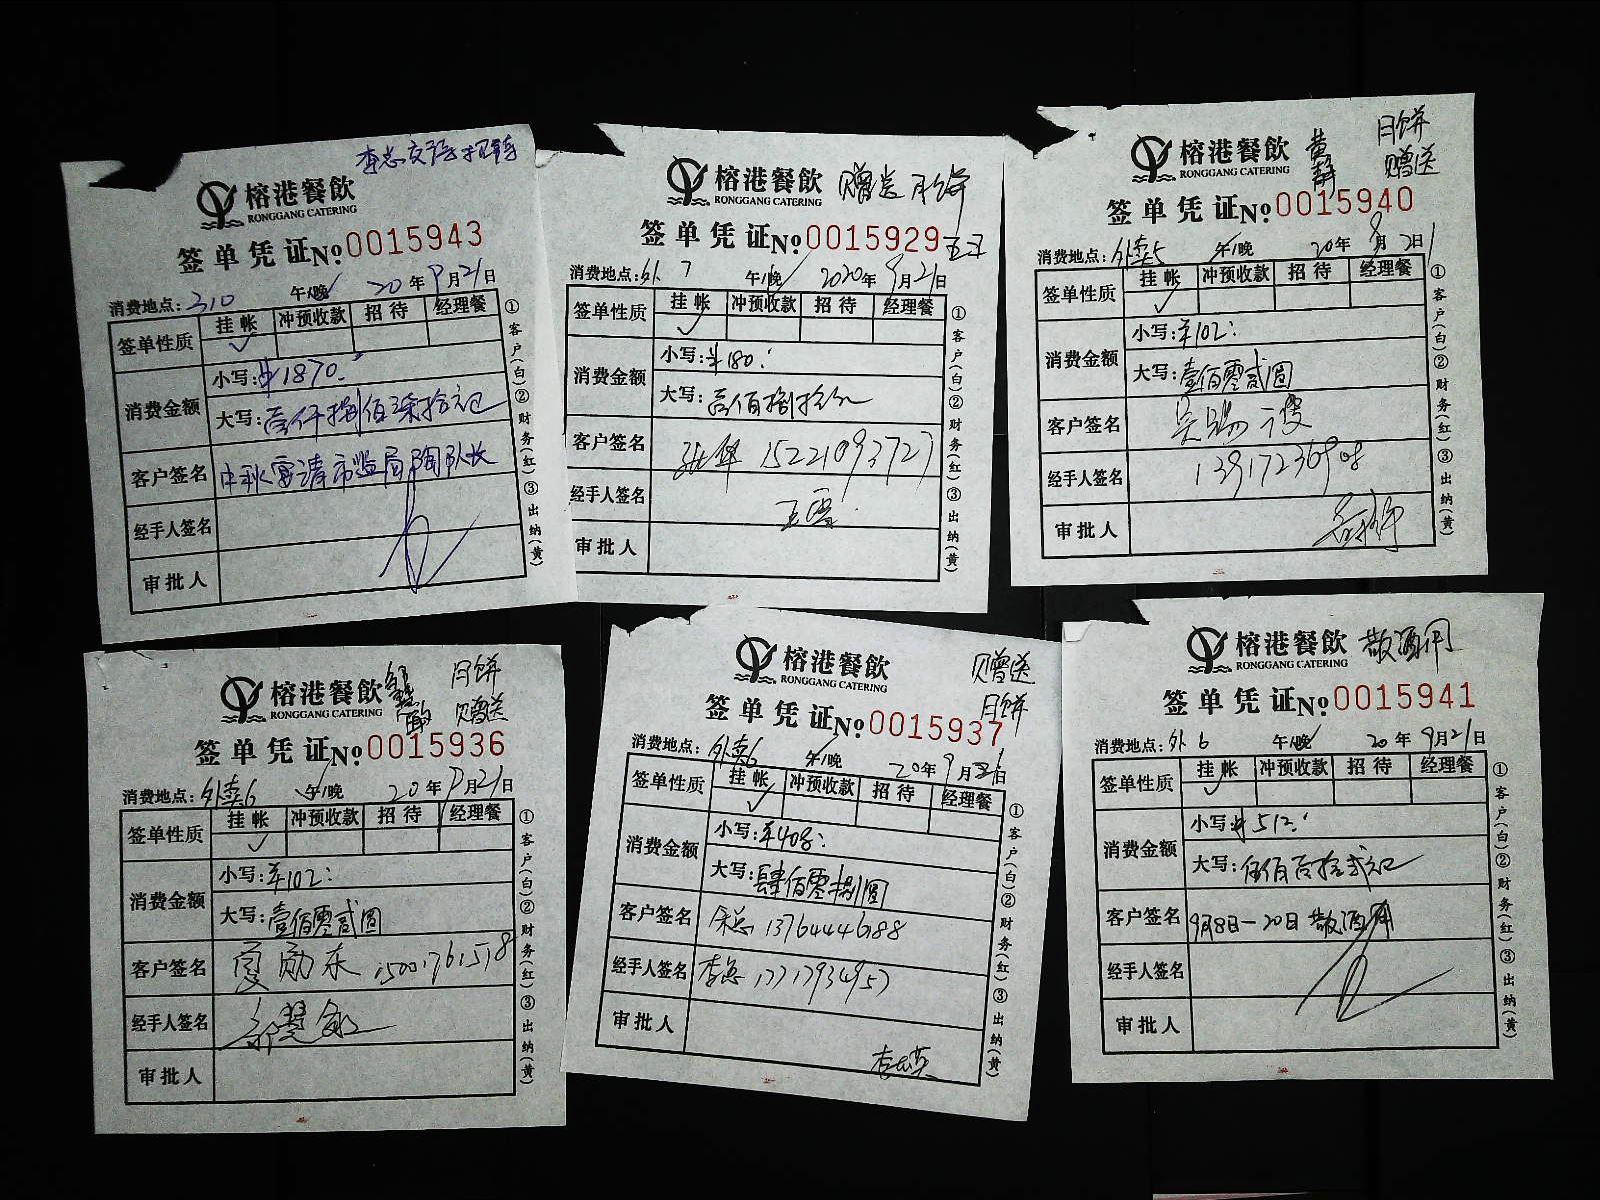 榕港餐飲
RONGGANG CATERING
签单凭证№0015943
消费地点：310 午/晚 20年9月21日
签单性质 挂帐 冲预收款 招待 经理餐
消费金额
小写：¥1870.
大写：壹仟捌佰柒拾元
客户签名 中秋宴请市监局陶队长
经手人签名
审批人
①客户（白）②财务（红）③出纳（黄）
榕港餐飲 赠送月饼
RONGGANG CATERING
签单凭证№0015929
消费地点：外7 午/晚 2020年9月21日
签单性质 挂帐 冲预收款 招待 经理餐
消费金额
小写：¥180.
大写：壹佰捌拾元
客户签名 张华 15221093727
经手人签名 王雪
审批人
①客户（白）②财务（红）③出纳（黄）
月饼
榕港餐飲 黄静 赠送
RONGGANG CATERING
签单凭证№0015940
消费地点：外卖5 午/晚 20年9月21日
签单性质 挂帐 冲预收款 招待 经理餐
消费金额
小写：¥102.
大写：壹佰零贰圆
客户签名
经手人签名
审批人
①客户（白）②财务（红）③出纳（黄）
月饼
榕港餐飲 赠送
RONGGANG CATERING
签单凭证№0015936
消费地点：外卖6 午/晚 20年9月21日
签单性质 挂帐 冲预收款 招待 经理餐
消费金额
小写：¥102.
大写：壹佰零贰圆
客户签名 夏勋东 15001761518
经手人签名 郭慧敏
审批人
①客户（白）②财务（红）③出纳（黄）
榕港餐飲 赠送
RONGGANG CATERING 月饼
签单凭证№0015937
消费地点：外卖6 午/晚 20年9月21日
签单性质 挂帐 冲预收款 招待 经理餐
消费金额
小写：¥408.
大写：肆佰零捌圆
客户签名 13764446188
经手人签名 李总
审批人
①客户（白）②财务（红）③出纳（黄）
榕港餐飲 散酒用
RONGGANG CATERING
签单凭证№0015941
消费地点：外6 午/晚 20年9月21日
签单性质 挂帐 冲预收款 招待 经理餐
消费金额
小写：¥512.
大写：伍佰壹拾贰元
客户签名 9月8日—20日 散酒用
经手人签名
审批人
①客户（白）②财务（红）③出纳（黄）